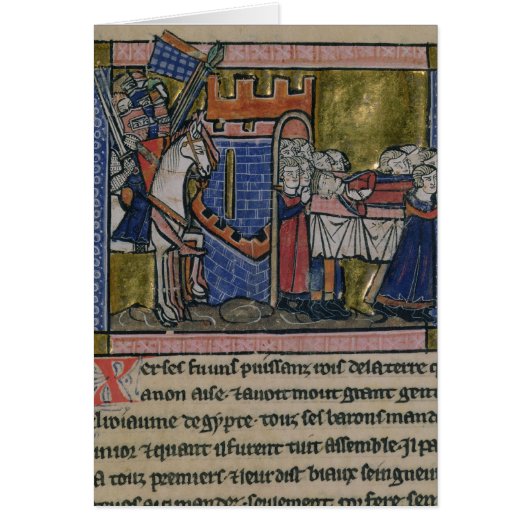 Xerses fu uns puissanz rois dela terre q
anon aise · ⁊ auoit mout grant gent
roiaume degypte · touz ses barons mand
⁊ quant il furent tuit assemble · Il pa
a touz premiers ⁊ leur dist biaux seingneu
seulement fere